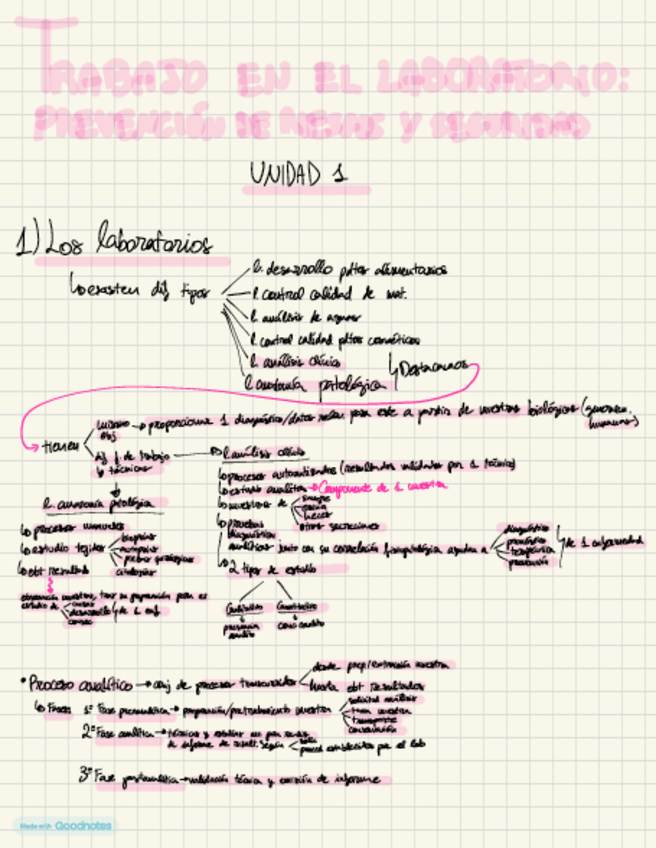 TRABAJO EN EL LABORATORIO:
PREVENCIÓN DE RIESGOS Y SEGURIDAD
UNIDAD 1
1) Los laboratorios
existen dif tipos
l. desarrollo pdtos alimentarios
l control calidad de mat.
l análisis de aguas
l control calidad pdtos cosméticos
l. análisis clínico
l anatomía patológica
Destacamos
tienen
mismo obj
proporcionar 1 diagnóstico/datos para este a partir de muestras biológicas
humanas)
dif f. de trabajo
y técnicas
l análisis clínico
procesos automatizados (resultados validados por 1 técnico)
estudio analitos
Componente de 1 muestra
muestras de
sangre
orina
heces
otras secreciones
pruebas
diagnósticas
analíticas junto con su correlación fisiopatológica ayudan a
diagnóstico
pronóstico
terapéutica
prevención
de 1 enfermedad
2 tipos de estudio
Cualitativo
presencia
analito
Cuantitativo
l. anatomía patológica
procesos manuales
estudio tejidos
biopsias
autopsias
citologías
obt resultado
estudio de
causas
desarrollo
de 1 enf
• Proceso analítico → conj de procesos transcurridos
desde prep/extracción muestra
hasta obt resultados
Fases
1º Fase preanalítica → preparación/pretratamiento muestra
solicitud análisis
toma muestra
transporte
conservación
2º Fase analítica → técnicas y estudios
de informe de result. según
establecidos por el lab
3º Fase postanalítica → validación técnica y emisión de informe
Made with Goodnotes